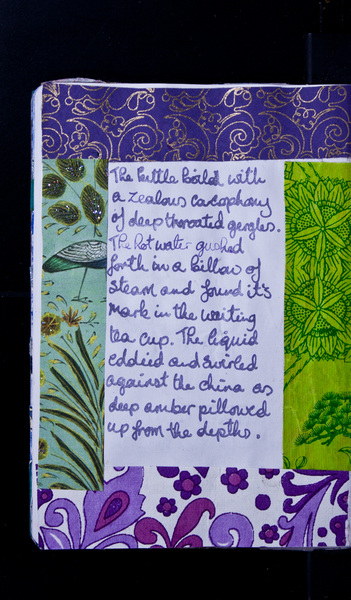 The kettle boiled with
a zealous cacophony
of deep throated gergles.
The hot water gushed
forth in a billow of
steam and found it's
mark in the waiting
tea cup. The liquid
eddied and swirled
against the china as
deep amber pillowed
up from the depths.